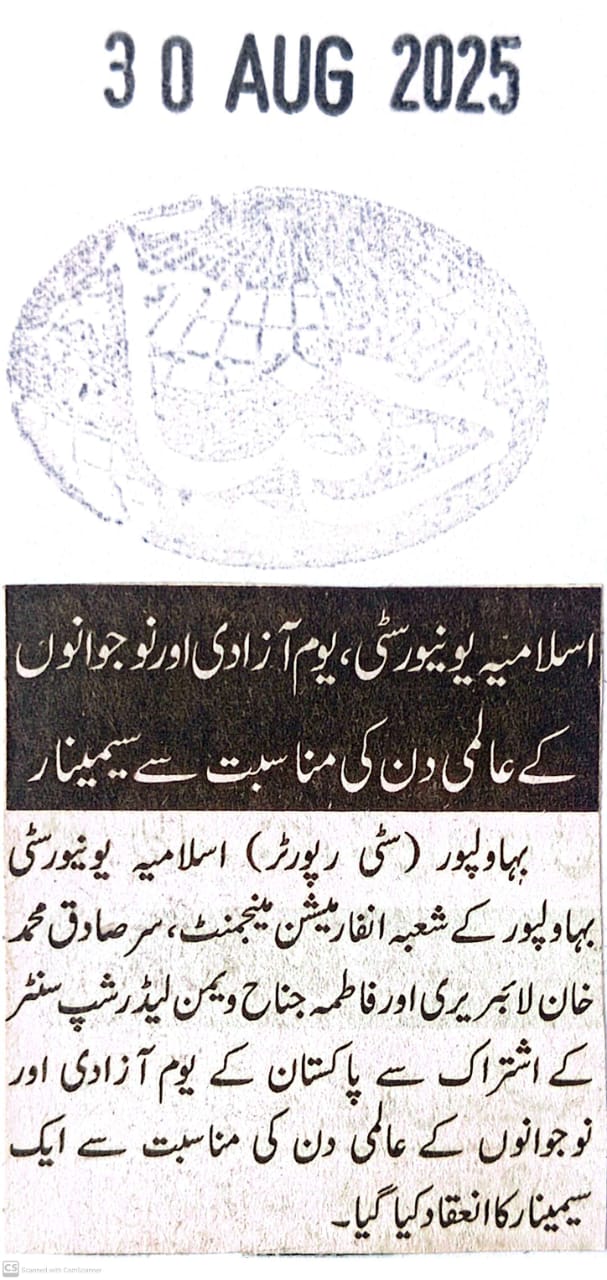 30 AUG 2025
اسلامیہ یونیورسٹی، یوم آزادی اور نوجوانوں
کے عالمی دن کی مناسبت سے سیمینار
بہاولپور (سٹی رپورٹر) اسلامیہ یونیورسٹی
بہاولپور کے شعبہ انفارمیشن مینجمنٹ، سر صادق محمد
خان لائبریری اور فاطمہ جناح ویمن لیڈر شپ سنٹر
کے اشتراک سے پاکستان کے یوم آزادی اور
نوجوانوں کے عالمی دن کی مناسبت سے ایک
سیمینار کا انعقاد کیا گیا۔
CS Scanned with CamScanner